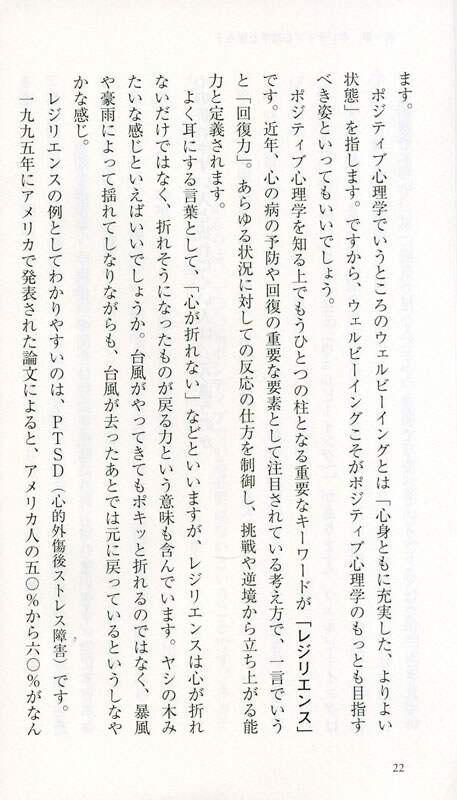 ます。
ポジティブ心理学でいうところのウェルビーイングとは「心身ともに充実した、よりよい
状態」を指します。ですから、ウェルビーイングこそがポジティブ心理学のもっとも目指す
べき姿といってもいいでしょう。
ポジティブ心理学を知る上でもうひとつの柱となる重要なキーワードが「レジリエンス」
です。近年、心の病の予防や回復の重要な要素として注目されている考え方で、一言でいう
と「回復力」。あらゆる状況に対しての反応の仕方を制御し、挑戦や逆境から立ち上がる能
力と定義されます。
よく耳にする言葉として、「心が折れない」などといいますが、レジリエンスは心が折れ
ないだけではなく、折れそうになったものが戻る力という意味も含んでいます。ヤシの木み
たいな感じといえばいいでしょうか。台風がやってきてもポキッと折れるのではなく、暴風
や豪雨によって揺れてしなりながらも、台風が去ったあとでは元に戻っているというしなや
かな感じ。
レジリエンスの例としてわかりやすいのは、PTSD（心的外傷後ストレス障害）です。
一九九五年にアメリカで発表された論文によると、アメリカ人の五〇％から六〇％がなん
22